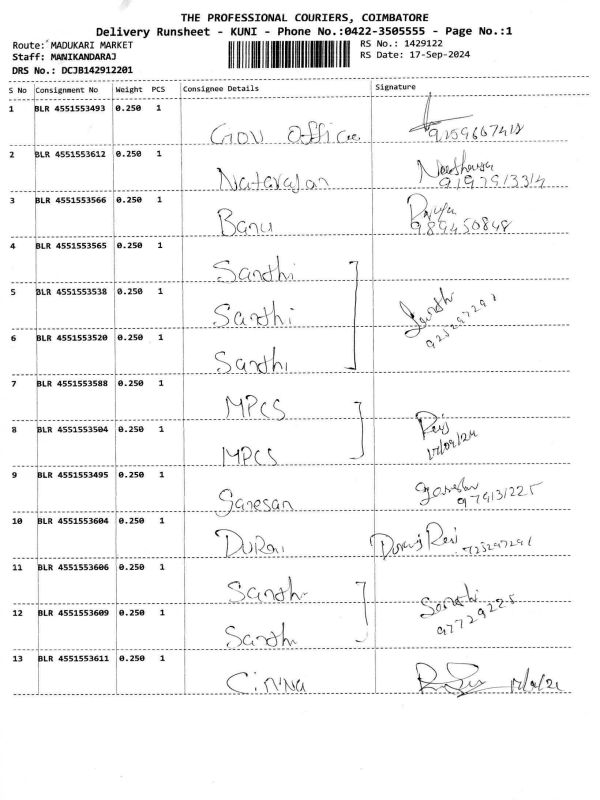 THE PROFESSIONAL COURIERS, COIMBATORE
Delivery Runsheet - KUNI - Phone No.:0422-3505555 - Page No.:1
Route: MADUKARI MARKET
RS No.: 1429122
Staff: MANIKANDARAJ
RS Date: 17-Sep-2024
DRS No.: DCJB142912201
S No Consignment No Weight PCS Consignee Details Signature
1 BLR 4551553493 0.250 1
Gov office 9159667418
2 BLR 4551553612 0.250 1
Natarajan
3 BLR 4551553566 0.250 1
Banu 989450848
4 BLR 4551553565 0.250 1
Santhi
5 BLR 4551553538 0.250 1
Santhi
6 BLR 4551553520 0.250 1
Santhi
7 BLR 4551553588 0.250 1
MPCS
8 BLR 4551553504 0.250 1
MPCS
9 BLR 4551553495 0.250 1
Ganesan
10 BLR 4551553604 0.250 1
DURai
11 BLR 4551553606 0.250 1
Santhi
12 BLR 4551553609 0.250 1
Santhi 97729225
13 BLR 4551553611 0.250 1
Cinna